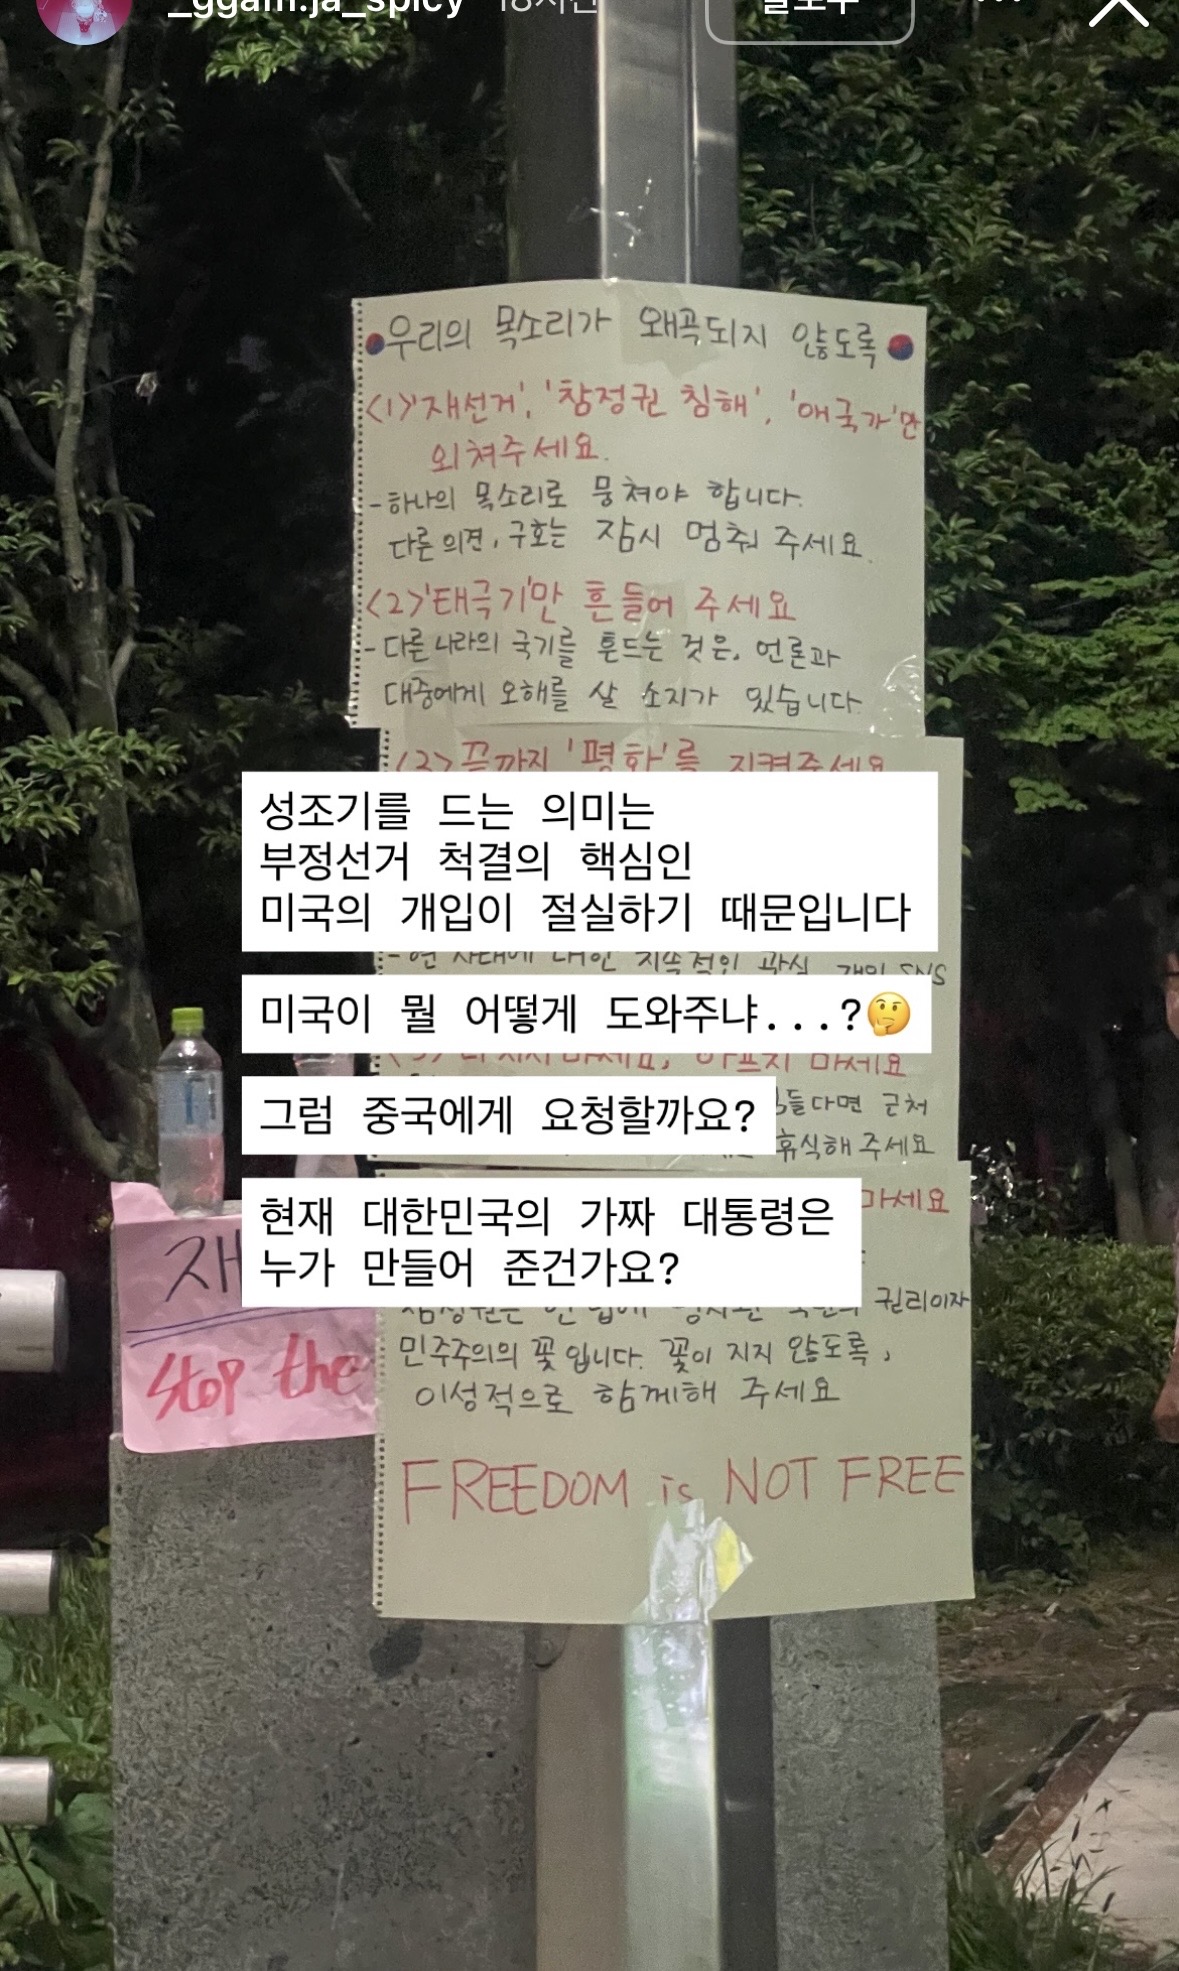 _ggam.ja_spicy 18시간
팔로우
우리의 목소리가 왜곡되지 않도록
<1>'재선거', '참정권 침해', '애국가'만
외쳐주세요.
-하나의 목소리로 뭉쳐야 합니다.
다른 의견, 구호는 잠시 멈춰 주세요.
<2>'태극기'만 흔들어 주세요
-다른 나라의 국기를 흔드는 것은, 언론과
대중에게 오해를 살 소지가 있습니다.
<3>끝까지 '평화'를 지켜주세요
성조기를 드는 의미는
부정선거 척결의 핵심인
미국의 개입이 절실하기 때문입니다
-현 사태에 대한 지속적인 관심, 개인 SNS
미국이 뭘 어떻게 도와주냐...?🤔
마세요, 아프지 마세요
힘들다면 근처
그럼 중국에게 요청할까요?
휴식해 주세요
마세요
현재 대한민국의 가짜 대통령은
누가 만들어 준건가요?
재
Stop the
권리이자
민주주의의 꽃입니다. 꽃이 지지 않도록,
이성적으로 함께해 주세요
FREEDOM is NOT FREE